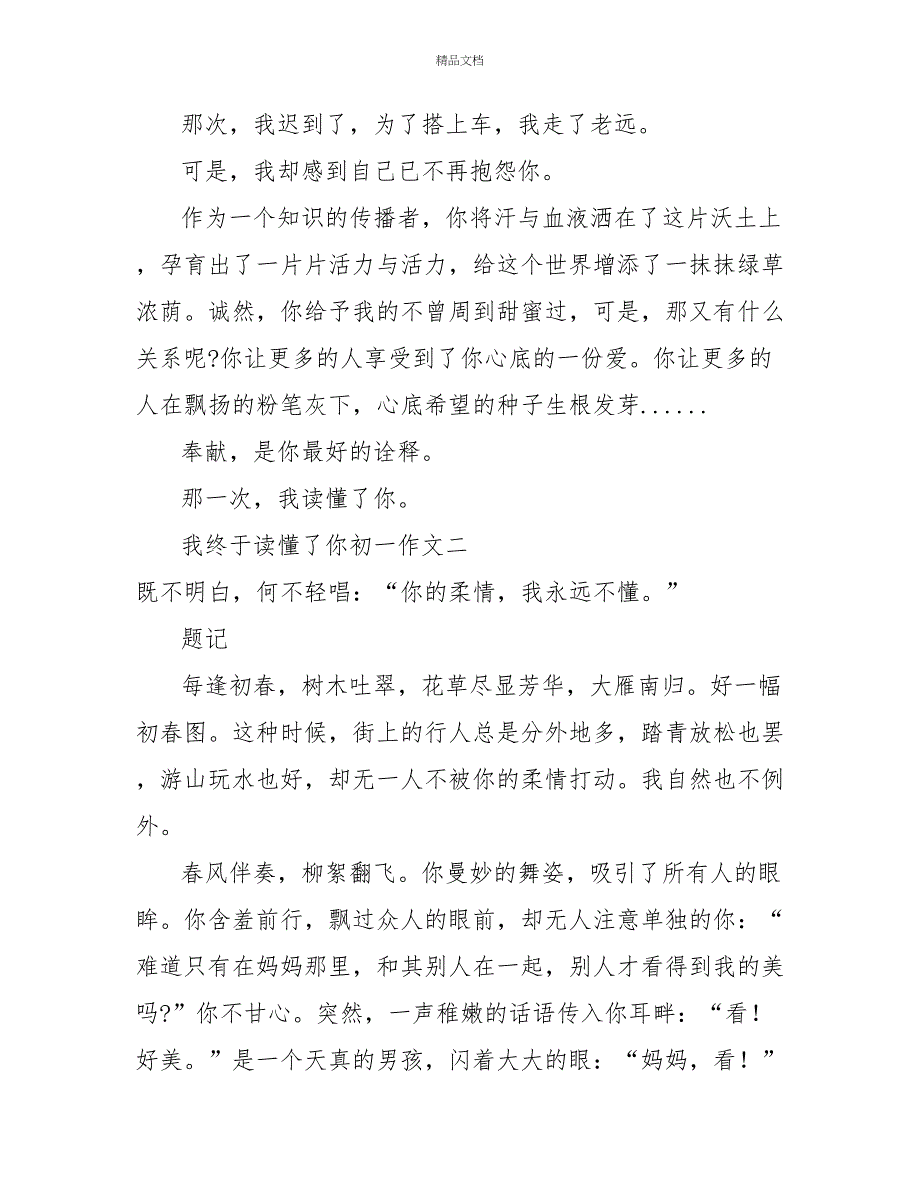 精品文档
那次，我迟到了，为了搭上车，我走了老远。
可是，我却感到自己已不再抱怨你。
作为一个知识的传播者，你将汗与血液洒在了这片沃土上
，孕育出了一片片活力与活力，给这个世界增添了一抹抹绿草
浓荫。诚然，你给予我的不曾周到甜蜜过，可是，那又有什么
关系呢?你让更多的人享受到了你心底的一份爱。你让更多的
人在飘扬的粉笔灰下，心底希望的种子生根发芽......
奉献，是你最好的诠释。
那一次，我读懂了你。
我终于读懂了你初一作文二
既不明白，何不轻唱：“你的柔情，我永远不懂。”
题记
每逢初春，树木吐翠，花草尽显芳华，大雁南归。好一幅
初春图。这种时候，街上的行人总是分外地多，踏青放松也罢
，游山玩水也好，却无一人不被你的柔情打动。我自然也不例
外。
春风伴奏，柳絮翻飞。你曼妙的舞姿，吸引了所有人的眼
眸。你含羞前行，飘过众人的眼前，却无人注意单独的你：“
难道只有在妈妈那里，和其别人在一起，别人才看得到我的美
吗?”你不甘心。突然，一声稚嫩的话语传入你耳畔：“看！
好美。”是一个天真的男孩，闪着大大的眼：“妈妈，看！”